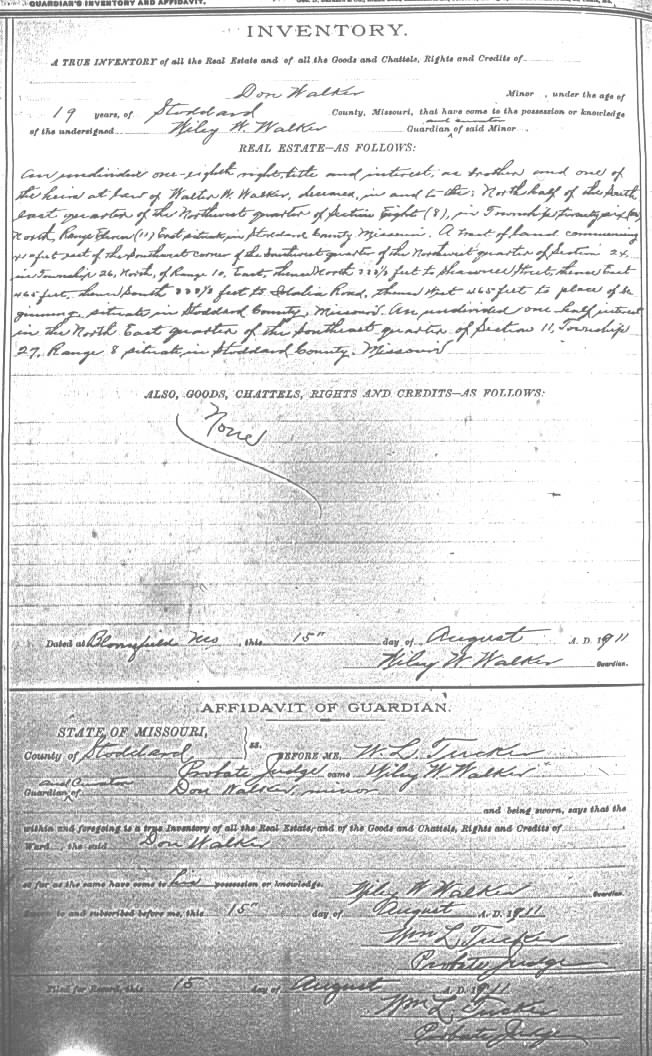 GUARDIAN'S INVENTORY AND AFFIDAVIT.
INVENTORY.
A TRUE INVENTORY of all the Real Estate and of all the Goods and Chattels, Rights and Credits of
Don Walker Minor , under the age of
19 years, of Stoddard County, Missouri, that have come to the possession or knowledge
and curator
of the undersigned Wiley W. Walker Guardian ^ of said Minor
REAL ESTATE—AS FOLLOWS:
An undivided one-eighth right, title and interest, as brother and one of
the heirs at law of Walter W. Walker, deceased, in and to the: North half of the South
east quarter of the Northwest quarter of Section Eight (8), in Township twenty six
North, Range Eleven (11) East situate, in Stoddard County Missouri. A tract of land commencing
feet east of the Southwest corner of the Southwest quarter of the Northwest quarter of Section 24
in Township 26, North, of Range 10, East, thence North feet to Street, thence East
465 feet, thence South feet to Road, thence West 465 feet to place of be
ginning, situate in Stoddard County, Missouri. An undivided one half interest
in the North East quarter of the Southeast quarter of Section 11, Township
27, Range 8 situate, in Stoddard County, Missouri
ALSO, GOODS, CHATTELS, RIGHTS AND CREDITS—AS FOLLOWS:
None
Dated at Bloomfield Mo , this 15" day of August A. D. 1911
Wiley W Walker Guardian.
AFFIDAVIT OF GUARDIAN.
STATE OF MISSOURI,
County of Stoddard } ss. BEFORE ME, W. L. Tucker
Probate Judge came Wiley W Walker
and Curator
Guardian ^ of Don Walker, minor
and being sworn, says that the
within and foregoing is a true Inventory of all the Real Estate, and of the Goods and Chattels, Rights and Credits of
Ward , the said Don Walker
so far as the same have come to his possession or knowledge. Wiley W Walker Guardian.
Sworn to and subscribed before me, this 15" day of August A. D. 1911
Wm L. Tucker
Probate Judge
Filed for Record, this 15 day of August A. D. 1911
Wm L. Tucker
Probate Judge